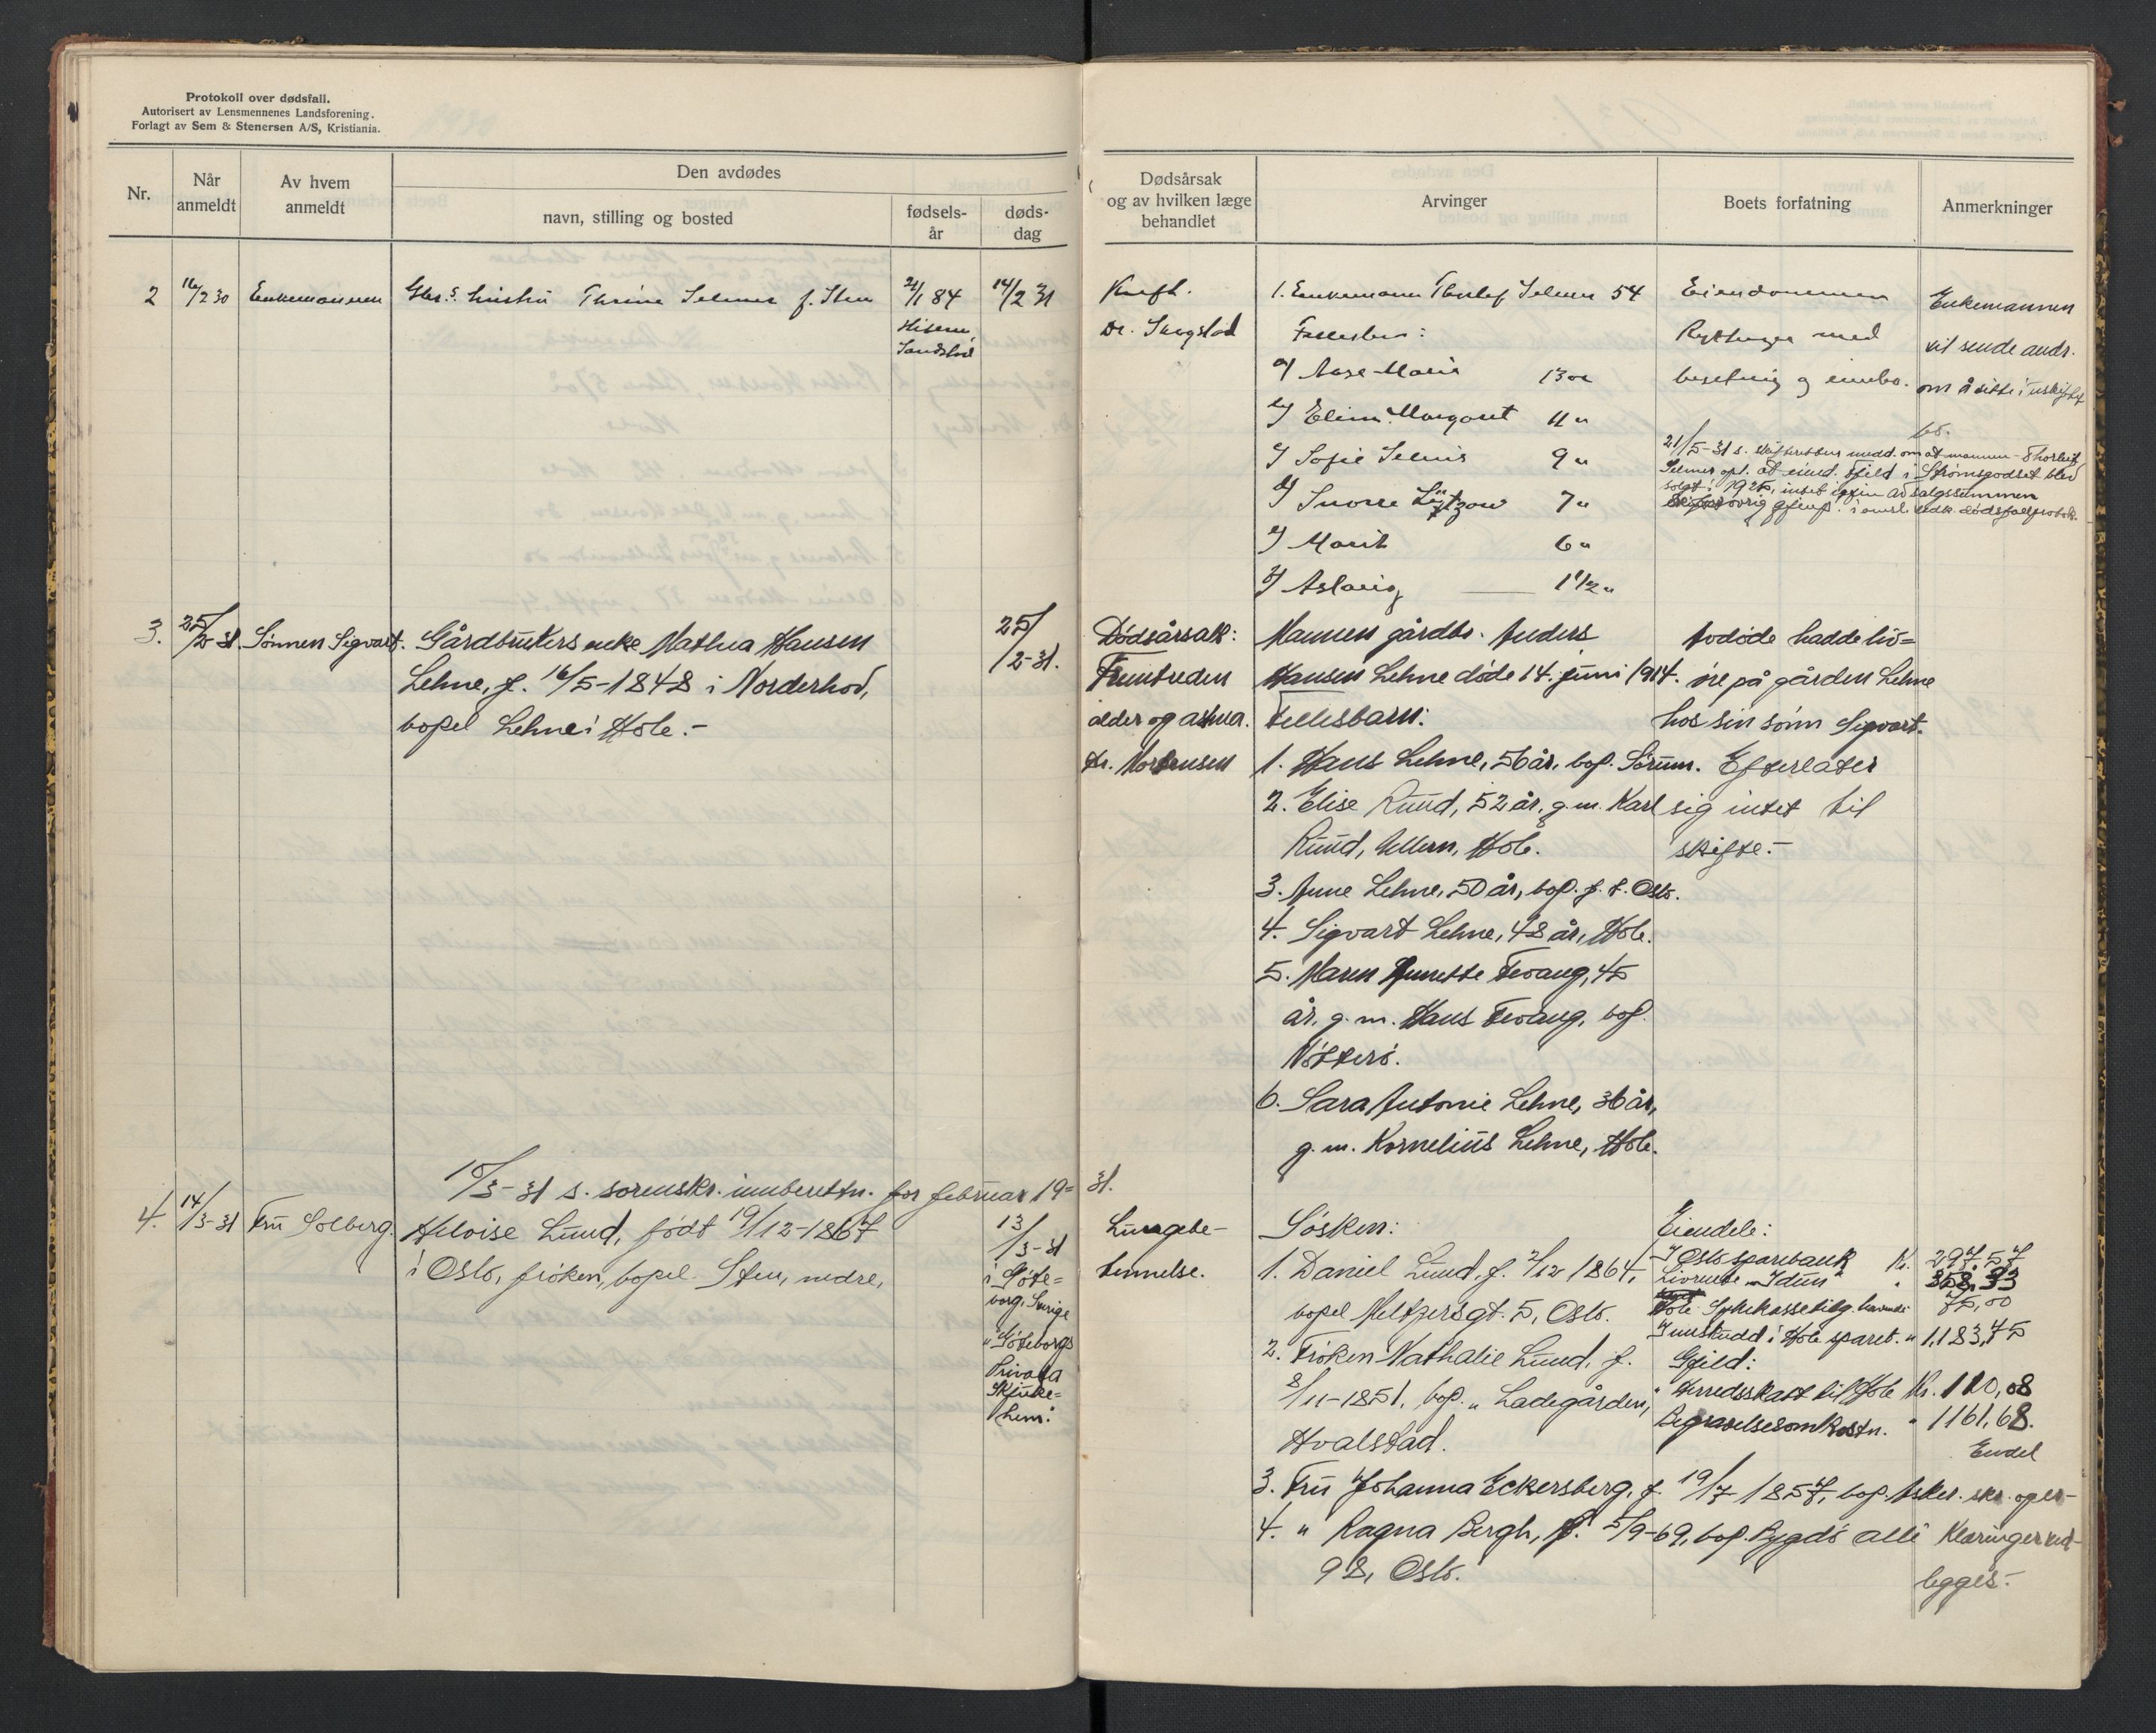 Protokoll over dødsfall.
Autorisert av Lensmennenes Landsforening.
Forlagt av Sem & Stenersen A/S, Kristiania.
Nr.
Når anmeldt
Av hvem anmeldt
Den avdødes
navn, stilling og bosted
fødsels-år
døds-dag
2 16/2 30 Enkemannen Gbr.s hustru Thrine Selmer f. Sten 21/1 84 14/2 31
3. 25/2-31. Sønnen Sigvart. Gårdbrukers enke Mathea Hansen 25/2-31.
Lehne, f. 16/5-1848 i Norderhov,
bopel Lehne i Hole.-
10/3-31 s. sorenskr. innberettn. for februar 19=31.
4. 14/3-31 Fru Solberg. Heloise Lund, født 19/12-1867 13/3-31
i Oslo, frøken, bopel Sten, nedre, i Gøte=
borg, Sverige
"Göteborgs
Privata
Skjuke=
hem."
Dødsårsak
og av hvilken læge
behandlet
Arvinger
Boets forfatning
Anmerkninger
Kreft. 1. Enkemann Thorleif Selmer 54 Eiendommen Enkemannen
Dr. Skogstad Fellesbarn: Rytterager med vil sende andr.
a/ Aase-Marie 13 " besetning og innbo. om å sitte i uskiftet
b/ Elina Margaret 11 " bo.
c/ Sofie Selmer 9 " 21/5-31 s. skifteretten medd. om at mannen Thorleif
Selmer opl. at eiend. Fjeld i Strømsgodset blev
d/ Snorre Lützow 7 " solgt i 1925, intet igjen av salgssummen
e/ Marit 6 "
f/ Aslaug 1 1/2 "
Dødsårsak: Mannen gårdbr. Anders Avdøde hadde liv=
Fremtreden Hansen Lehne døde 14. juni 1914. øre på gården Lehne
alder og astma. Fellesbarn: hos sin sønn Sigvart.
Dr. Mortensen 1. Hans Lehne, 56 år, bop. Sørum. Efterlater
2. Elise Ruud, 52 år, g.m. Karl sig intet til
Ruud, Ullern, Hole. skifte.-
3. Anne Lehne, 50 år, bop. f. t. Oslo.
4. Sigvart Lehne, 48 år, Hole.
5. Maren Annette Tevang, 45
år, g.m. Hans Tevang, bop.
Nøtterø.
6. Sara Antonie Lehne, 36 år,
g.m. Kornelius Lehne, Hole.
Lungebe- Søsken: Eiendele:
tennelse. 1. Daniel Lund, f. 2/12 1864, I Oslo sparebank Kr. 297,57
Livrente "Idun" " 358,33
bopel Meltzersgt. 5, Oslo. Hole Sykekasse tilg. havende 75,00
Innskudd i Hole spareb. " 1,183,45
2. Frøken Nathalie Lund, f. Gjeld:
8/11-1851, bop. "Ladegården", Herredsskatt til Hole Kr. 110,08
Hvalstad. Begravelsesomkostn. " 1161,68.
Endel
3. Fru Johanna Eckersberg, f. 19/7 1857, bop. Asker. skr. oplr-
4. " Ragna Bergh, f. 5/9-69, bop. Bygdø alle Klaringer ved-
98, Oslo. legges.-